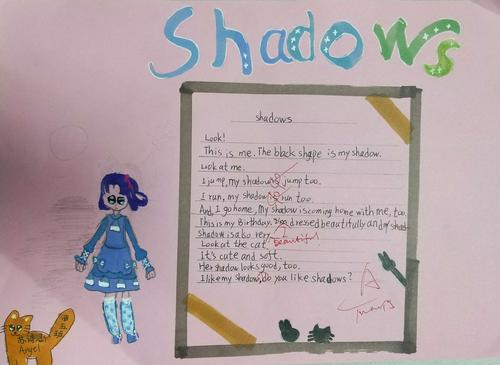 Shadows
shadows
Look!
This is me. The black shape is my shadow.
Look at me.
I jump, my shadow jump too.
I run, my shadow run too.
And, I go home, My shadow is coming home with me, too.
This is my Birthday. I dressed beautifully and my shad
Shadow is also very
beautiful
Look at the cat
It's cute and soft.
Her shadow looks good, too.
I like my shadow, Do you like shadows?
A
Angel